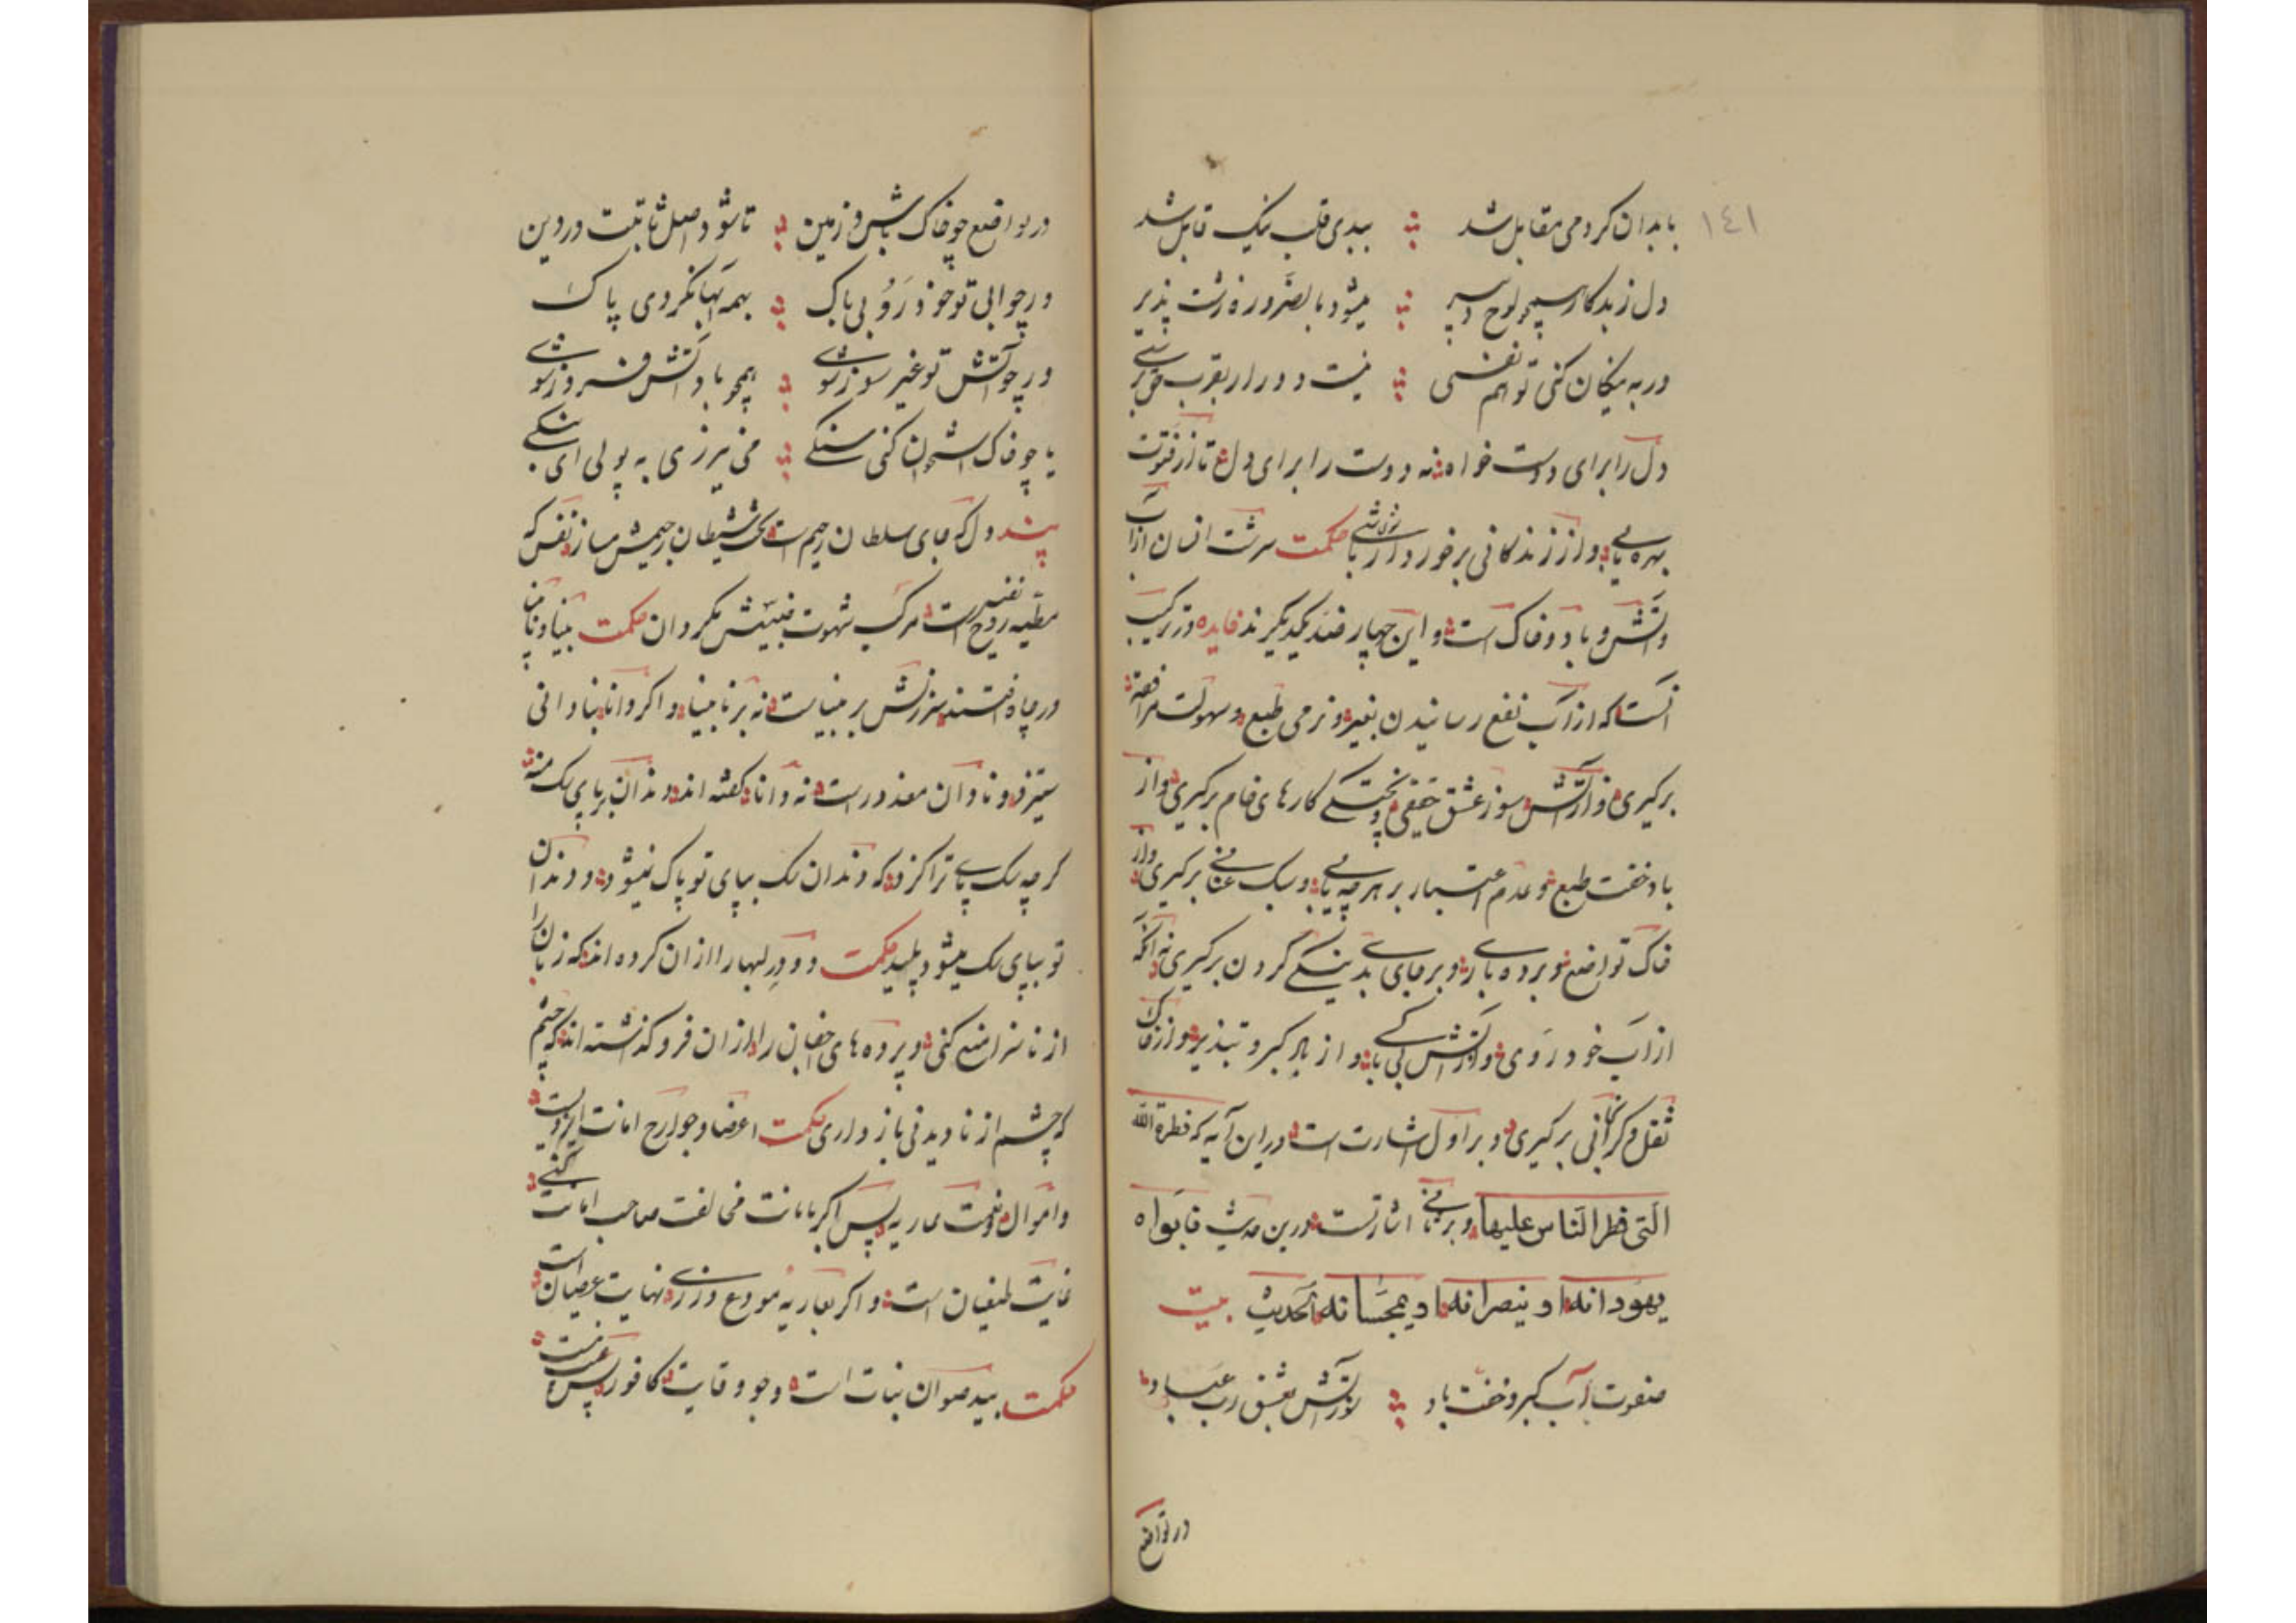 ١٤١
با بدان کر دمی مقابل شد ؞ ببدی قلب نیک قابل شد
دل ز بدکار سپهر لوح دبیر ؞ میشود بالضرورة زشت پذیر
ور به نیکان کنی تو هم نفسی ؞ نیست دور ار بقرب حق برسی
دل را برای دوست خواه نه دوست را برای دل تا از فتوت
بهره یابی و از زندکانی برخوردار باشی حکمت سرشت انسان از آب
و آتش و باد و خاک است و این چهار ضد یکدیکرند فایده در ترکیب
آنست که از آب نفع رسانیدن بغیر و نرمی طبع و سهولت مرافقة
برکیری و از آتش سوز عشق حقیقی و پختکی کارهای خام برکیری و از
باد خفت طبع و عدم اعتبار بر هر چه یابی و سبک عنانی برکیری و از
خاک تواضع و برده باری و بر جای بد نیکی کردن برکیری نه آنکه
از آب خود رَوی و از آتش بی باکی و از باد کبر و تبذیر و از خاک
ثقل و کرانی برکیری و بر اول اشارت است در این آیه که فطرة الله
الّتی فطر النّاس علیها و بر ثانی اشارتست درین حدیث فابواه
یهودانه او ینصرانه او یمجّسانه الحدیث بیت
صفوت آب کیر و خفت باد ؞ ز آتش عشق رب عباد
در تواضع
در تواضع چو خاک باش و زمین ؞ تا شود اصل ثابتت در دین
ور چو آبی تو خود رَوُ بی باک ؞ بهمه آبها نکردی پاک
ور چو آتش تو غیر سوز شوی ؞ همچو باد آتش فروز شوی
یا چو خاک استخوان کنی سنکی ؞ می نیرزی به پولی ای بنکی
پند دل که جای سلطان رحیم است شیطان رجیمش مساز نفس که
مطیه روح نفیس است مرکب شهوت خبیثش مکردان حکمت بینا و نابینا
در چاه افتند سرزنش بر بیناست نه بر نابینا و اکر دانا بنادانی
ستیزد و نادان معذورست نه دانا کفته اند دندان بر پای سک منه
کر چه سک پای ترا کزد که دندان سک بپای تو پاک نمیشود و دندان
تو بپای سک میشود پلید حکمت دو در لبها را از ان کرده اند که زبان را
از ناسزا منع کنی و پرده های اجفان را از ان فرو کذاشته اند که چشم
که چشم از نادیدنی باز داری حکمت اعضا و جوارح امانت ایزدیست
و اموال و نعمت عاریه پس اکر بامانت مخالفت صاحب امانت کنی
غایت طغیان است و اکر بعاریه مودع ورزی نهایت عصیان است
حکمت بید صوان نبات است وجو وقایت کافور پس